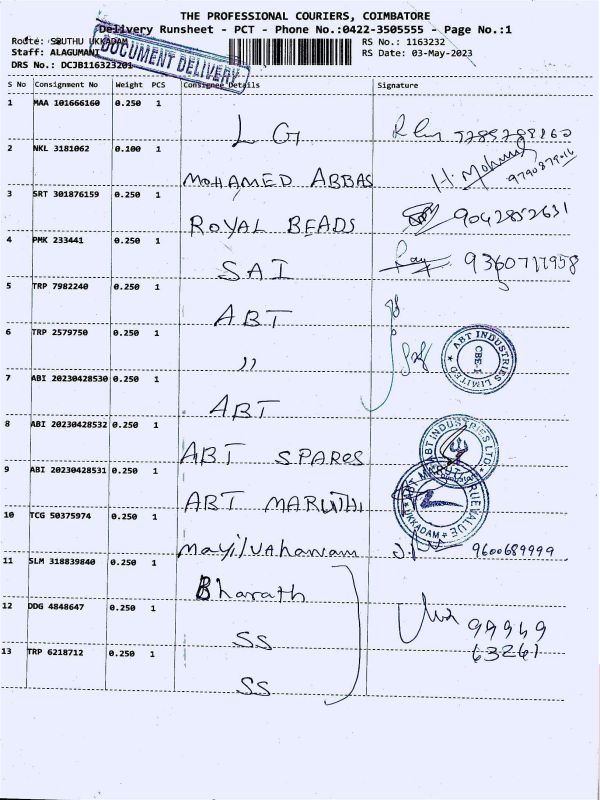 THE PROFESSIONAL COURIERS, COIMBATORE
Delivery Runsheet - PCT - Phone No.:0422-3505555 - Page No.:1
Route: SOUTHU UKKADAM
RS No.: 1163232
Staff: ALAGUMANI
RS Date: 03-May-2023
DRS No.: DCJB116323201
DOCUMENT DELIVERY
S No Consignment No Weight PCS Consignee Details Signature
1 MAA 101666160 0.250 1
L G 9789788160
2 NKL 3181062 0.100 1
MOHAMED ABBAS H. Mohmed 9790879016
3 SRT 301876159 0.250 1
ROYAL BEADS 9042852631
4 PMK 233441 0.250 1
SAI 9360717958
5 TRP 7982240 0.250 1
ABT
6 TRP 2579750 0.250 1
,, ABT INDUSTRIES LIMITED CBE-1
7 ABI 20230428530 0.250 1
ABT
8 ABI 20230428532 0.250 1
ABT SPARES ABT INDUSTRIES LTD.
9 ABI 20230428531 0.250 1
ABT MARUTHI ABT MARUTI TRUE VALUE UKKADAM
10 TCG 50375974 0.250 1
Mayilvahanam 9600689999
11 SLM 318839840 0.250 1
Bharath
12 DDG 4848647 0.250 1
SS 99949
13 TRP 6218712 0.250 1 63261
SS